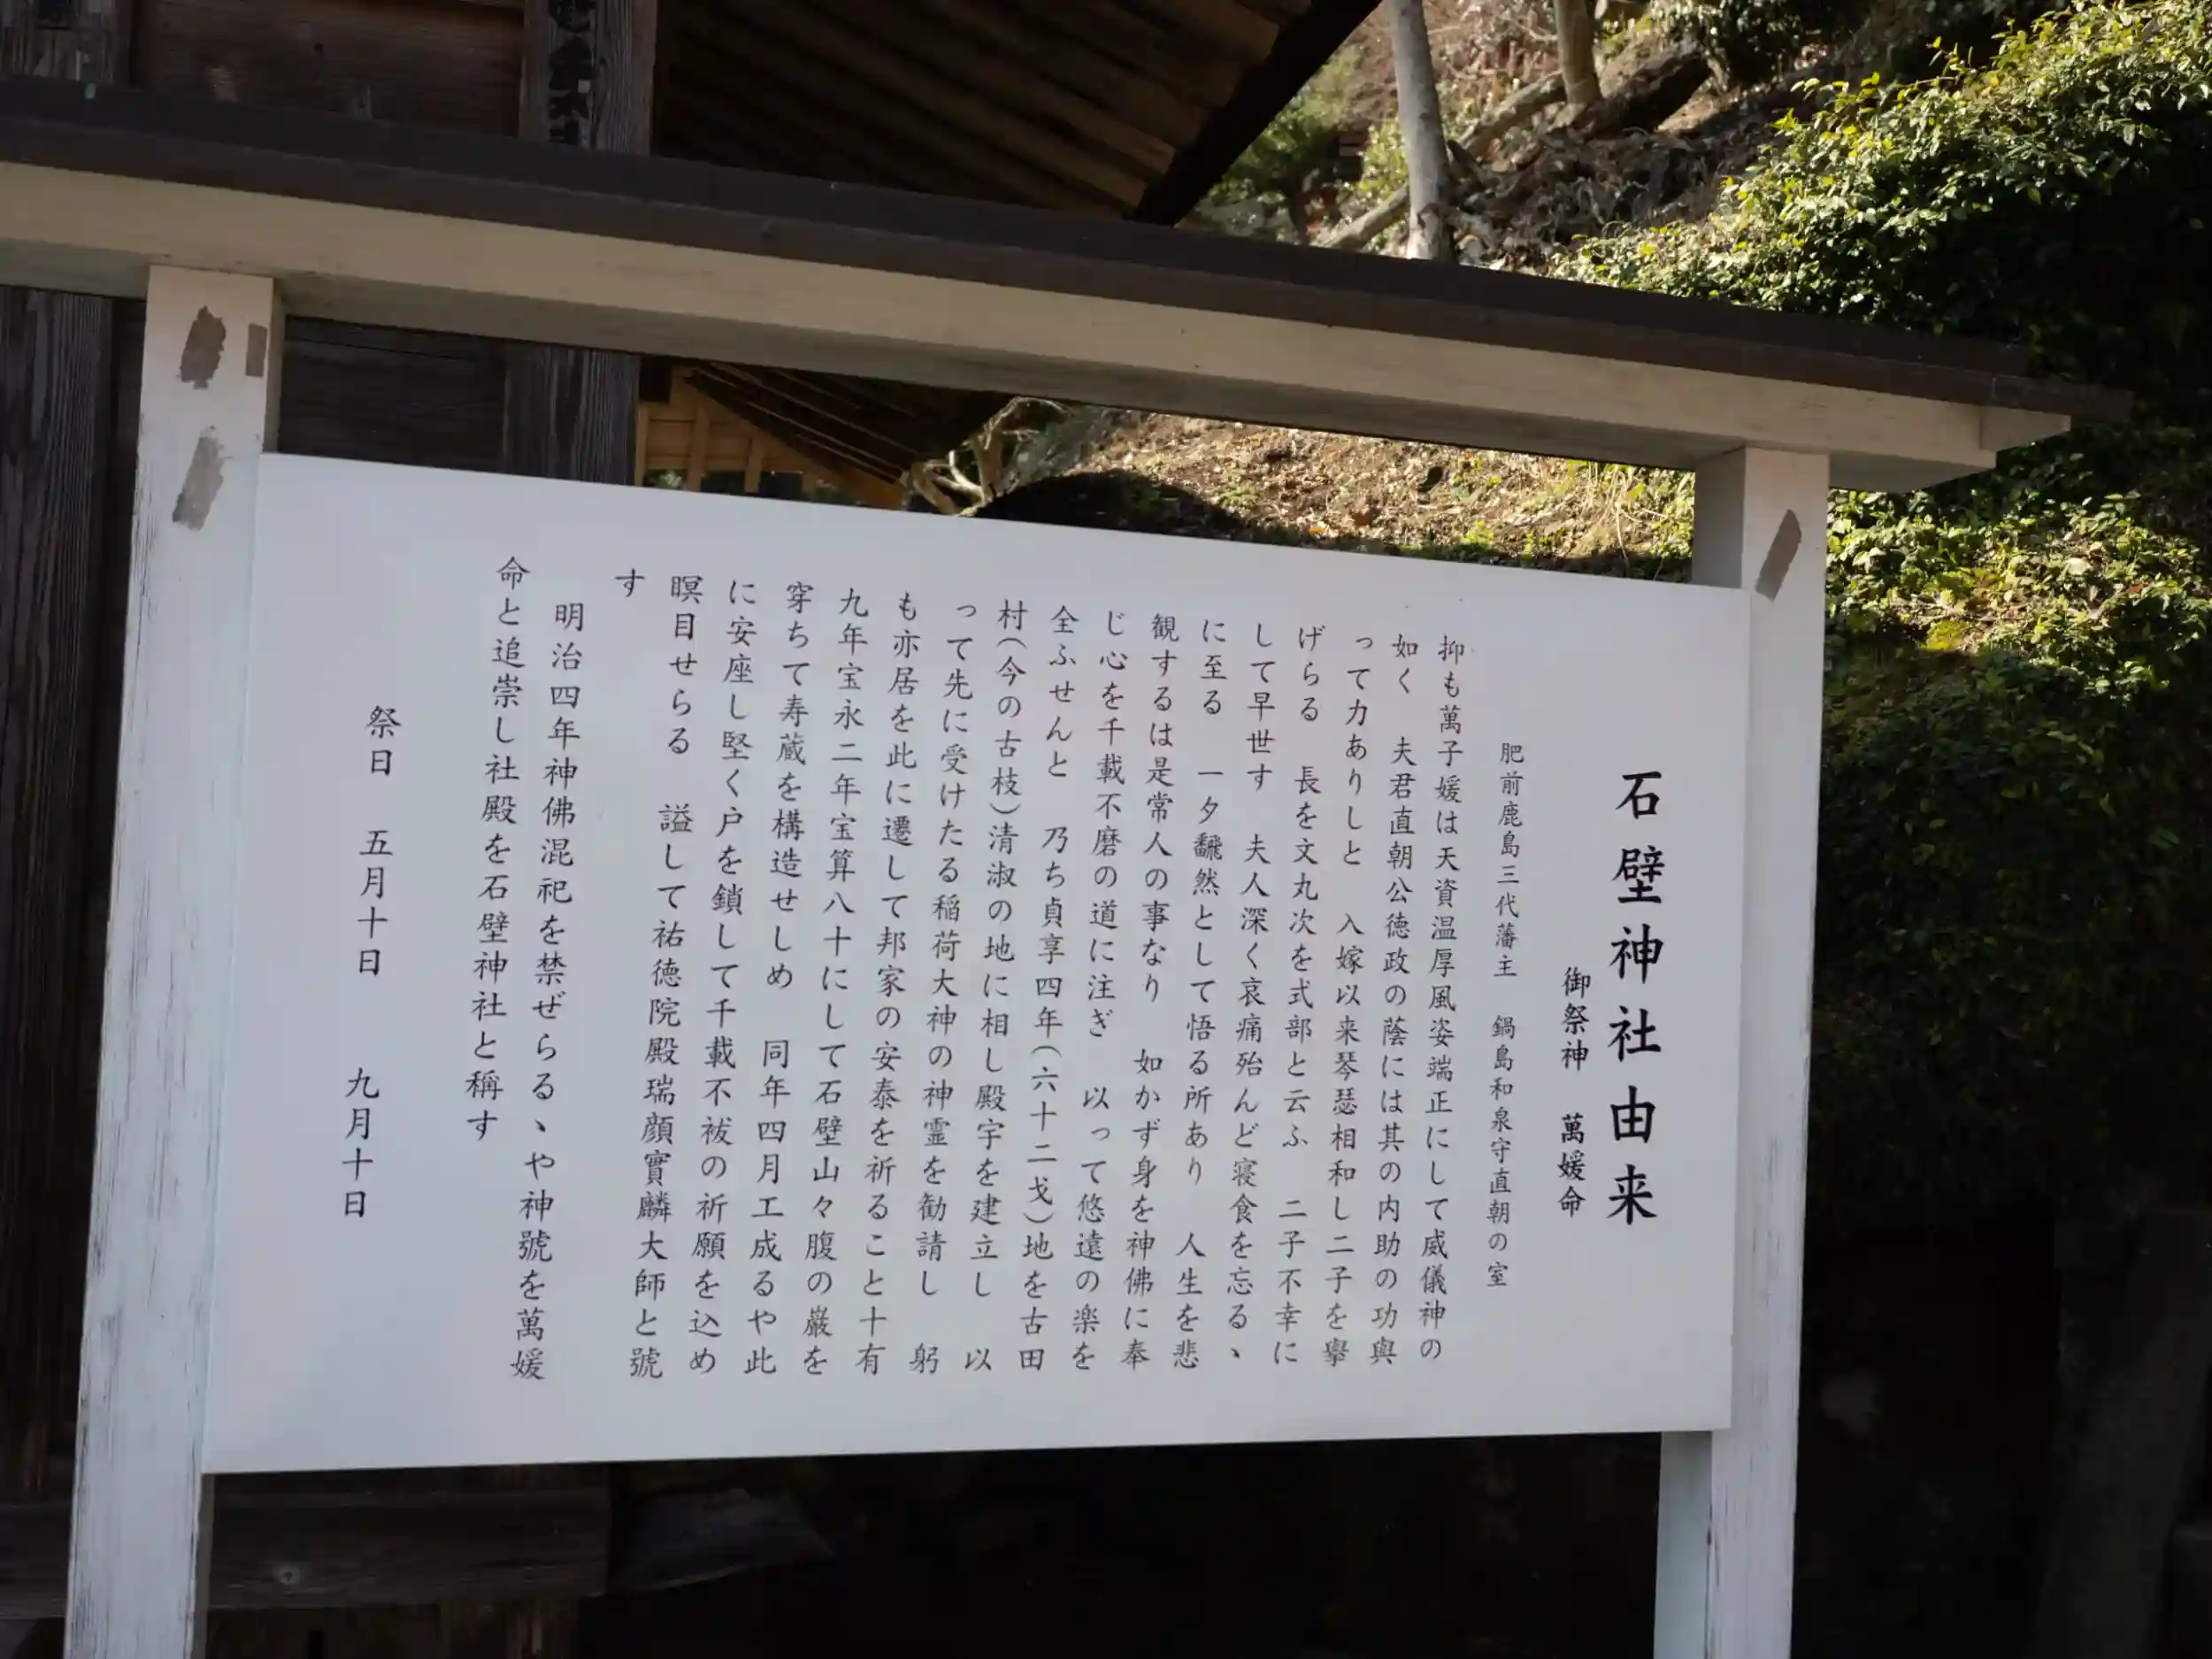 石壁神社由来
御祭神　萬媛命
肥前鹿島三代藩主　鍋島和泉守直朝の室
抑も萬子媛は天資温厚風姿端正にして威儀神の
如く　夫君直朝公徳政の蔭には其の内助の功與
って力ありしと　入嫁以来琴瑟相和し二子を擧
げらる　長を文丸次を式部と云ふ　二子不幸に
して早世す　夫人深く哀痛殆んど寝食を忘るゝ
に至る　一夕飜然として悟る所あり　人生を悲
観するは是常人の事なり　如かず身を神佛に奉
じ心を千載不磨の道に注ぎ　以って悠遠の楽を
全ふせんと　乃ち貞享四年（六十二戈）地を古田
村（今の古枝）清淑の地に相し殿宇を建立し　以
って先に受けたる稲荷大神の神霊を勧請し　躬
も亦居を此に遷して邦家の安泰を祈ること十有
九年宝永二年宝算八十にして石壁山々腹の巌を
穿ちて寿蔵を構造せしめ　同年四月工成るや此
に安座し堅く戸を鎖して千載不祓の祈願を込め
瞑目せらる　謚して祐徳院殿瑞顔實麟大師と號
す
明治四年神佛混祀を禁ぜらるゝや神號を萬媛
命と追崇し社殿を石壁神社と稱す
祭日　五月十日　九月十日